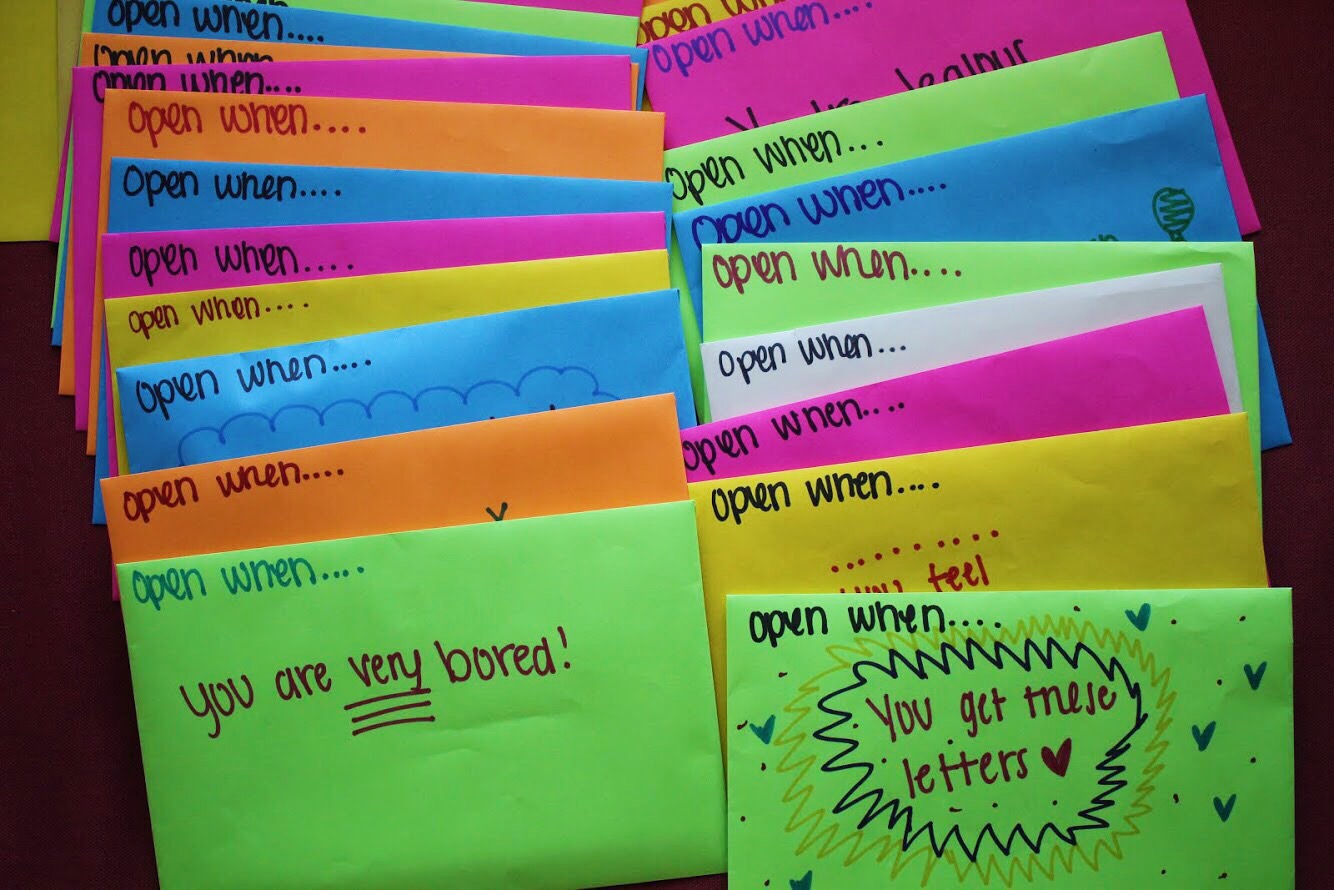 Open when....
Open when....
Open when....
Open when....
Open when....
Open when....
open when....
open when....
open when....
open when....
you are very bored!
Open
Open when....
Open when...
Open when....
Open when....
Open when...
open when....
open when....
you feel
open when....
You get these
letters ♥